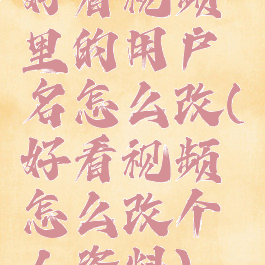 好看视频
里的用户
名怎么改(
好看视频
怎么改个
人资料)